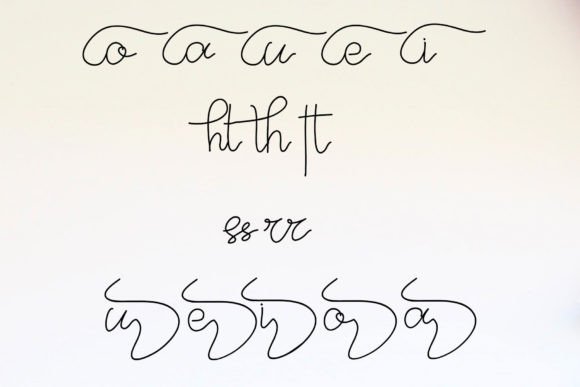 o a u e i
ht th tt
ss rr
u e i o a